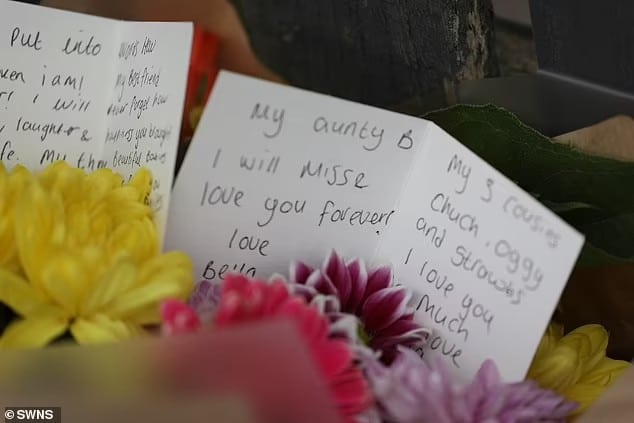 Put into
ven i am!
I will
laughter &
fe. My tho
words how
my bestfriend
never forget how
happiness you brought
beautiful babies
My aunty B
I will Misse
love you forever!
love
Bella
My 3 cousins
Chuch, Oggy
and Strawbs
I love you
Much
love
©SWNS